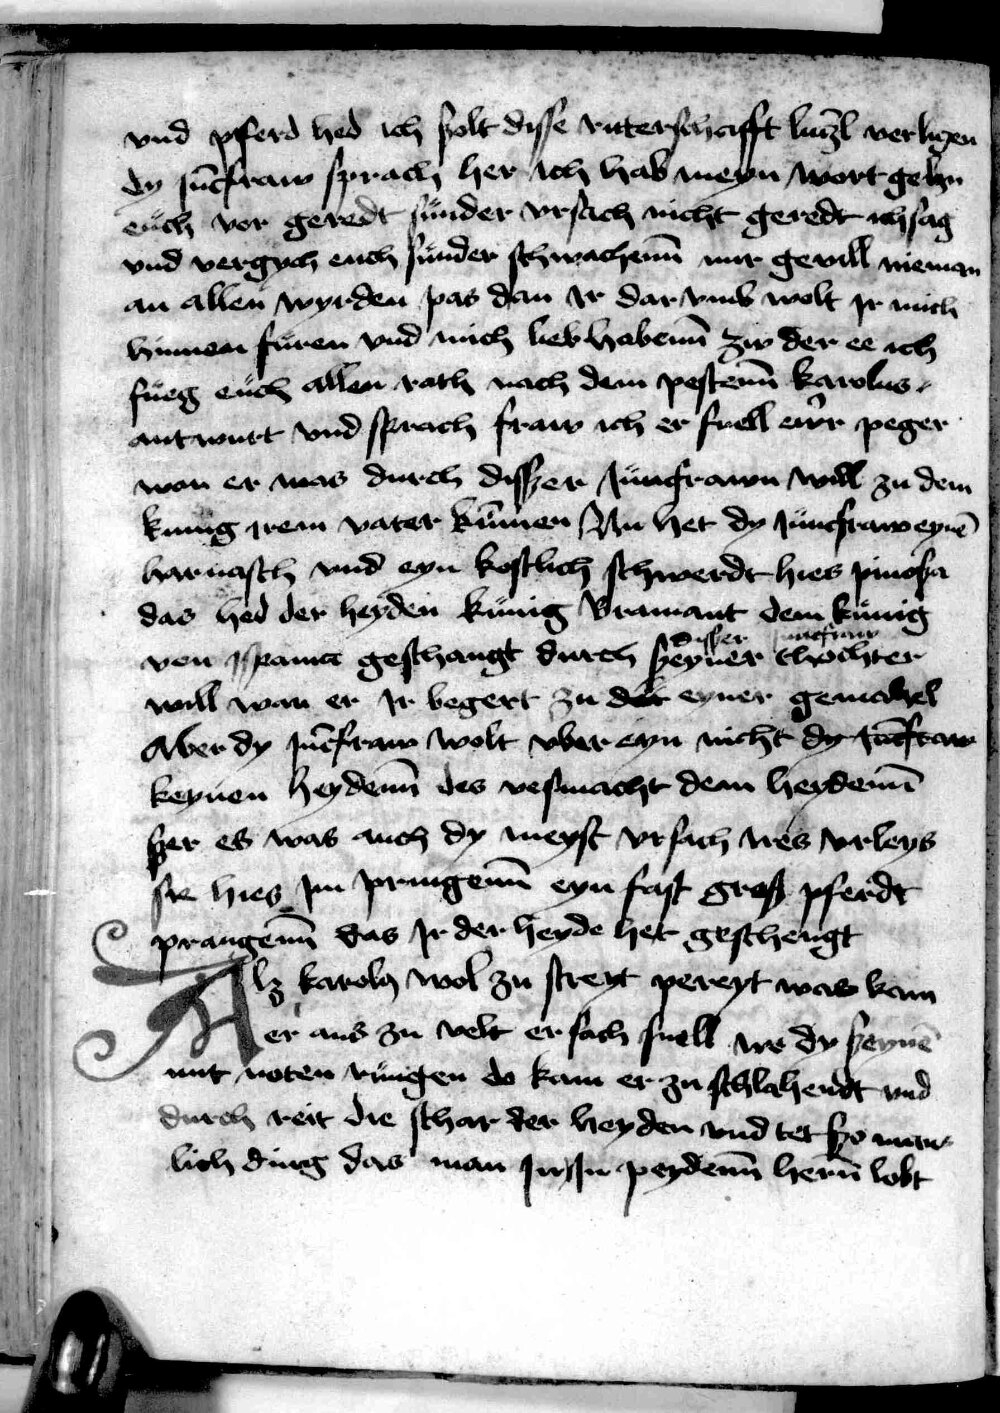 vnd pferd hed ich ßolt disse ritterschafft lutzl verligen
dy jūcfraw sprach her ich hab meyn wort gehn
euch vor geredt sunder vrsach nicht geredt ich sag
vnd vergych euch sunder schwachenn mir gevill nieman
an allen wyrden pas dan ir dar vmb wolt jr mich
hinnen furen vnd mich lieb habenn zw der ee ich
fueg euch allen rath nach dem pestenn karolus
antwurt vnd sprach fraw ich er fuell ewr peger
wan er was durch disßer Jungfrawn will zu dem
kunig irem vater kūmen Nu het dy Juncfraw eynē
harnasch vnd eyn kostlich schwerdt hies pinosa
das hed der heyden kunig Bramant dem kunig
disser junckfraw
von jspania geschangt durch ßeyner thochter
will wan er Ir begert zu der eyner gemahel
Aber dy jūcfraw wolt vber eyn nicht dy jūcfraw
keynen heydenn des vesmacht dem heydenn
ßer es was auch dy meyst vrsach ires vrleys
sie hies im pringenn eyn fast groß pferdt
prangenn das Ir der heyde het geschengt
Alz karolus wol zu streyt pereyt was kam
er aus zu velt er sach snell we dy ßeynē
mit noten rungen do kam er zu schlahendt vnd
durch reit die schar der heyden vnd tet ßo man
lich ding das man In In peydenn hern lobt